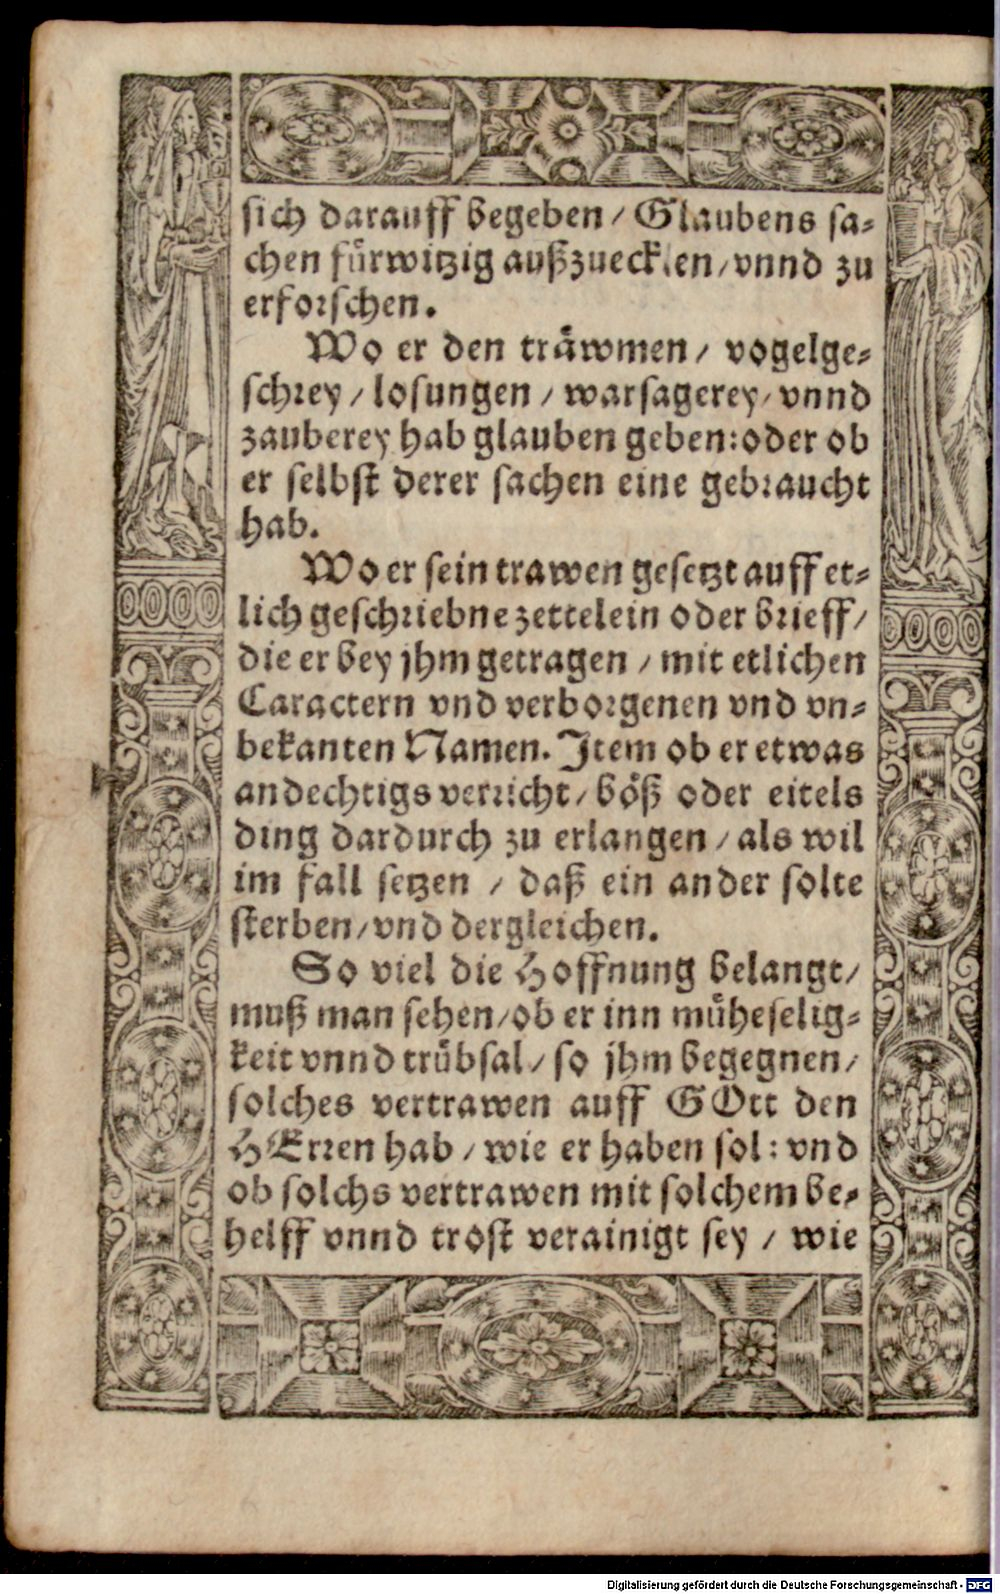 sich darauff begeben / Glaubens sa-
chen fürwitzig außzuecken / vnnd zu
erforschen.
Wo er den träwmen / vogelge-
schrey / losungen / warsagerey / vnnd
zauberey hab glauben geben: oder ob
er selbst derer sachen eine gebraucht
hab.
Wo er sein trawen gesetzt auff et-
lich geschriebne zettelein oder brieff /
die er bey jhm getragen / mit etlichen
Caractern vnd verborgenen vnd vn-
bekanten Namen. Item ob er etwas
andechtigs verricht / böß oder eitels
ding dardurch zu erlangen / als wil
im fall setzen / daß ein ander solte
sterben / vnd dergleichen.
So viel die Hoffnung belangt /
muß man sehen / ob er inn müheselig-
keit vnnd trübsal / so jhm begegnen /
solches vertrawen auff GOtt den
HErren hab / wie er haben sol: vnd
ob solchs vertrawen mit solchem be-
helff vnnd trost verainigt sey / wie
Digitalisierung gefördert durch die Deutsche Forschungsgemeinschaft - DFG